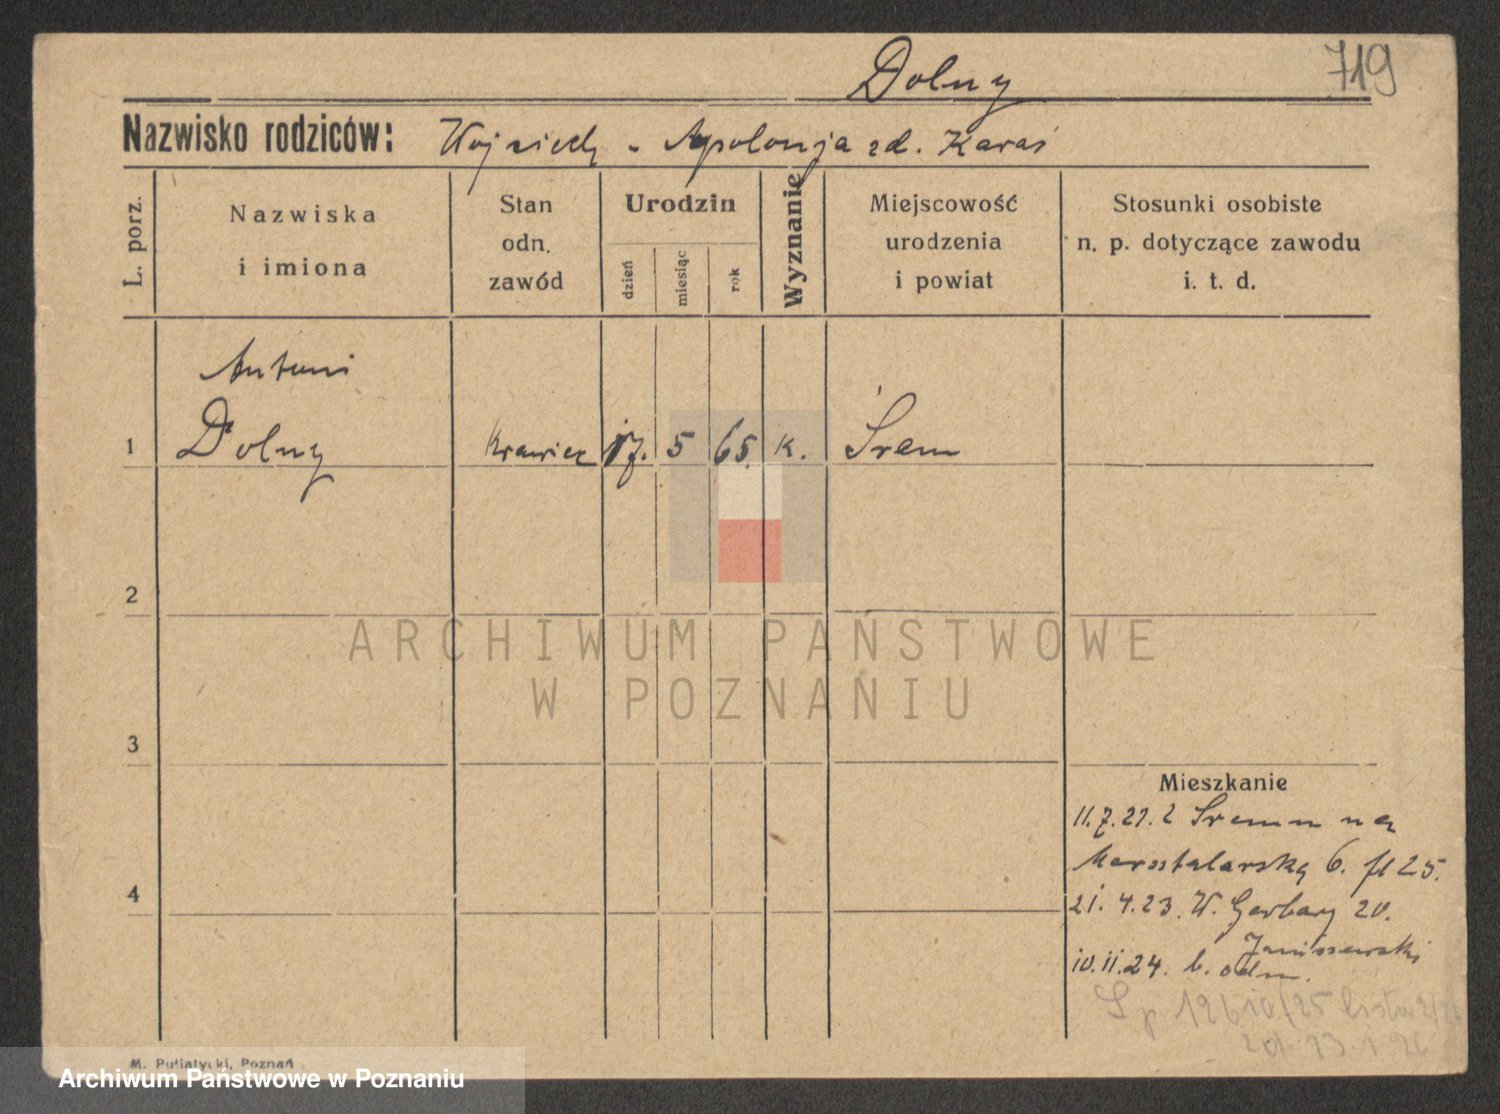 Dolny
719
Nazwisko rodziców: Wojciech - Apolonja zd. Karaś
L. porz.
Nazwiska
i imiona
Stan
odn.
zawód
Urodzin
dzień
miesiąc
rok
Wyznanie
Miejscowość
urodzenia
i powiat
Stosunki osobiste
n. p. dotyczące zawodu
i. t. d.
Antoni
1 Dolny Krawiec 17. 5 65. K. Śrem
2
ARCHIWUM PAŃSTWOWE
W POZNANIU
3
Mieszkanie
11.7.21. z Śremu na
Masztalarską 6.
4
21. 4.23. W. Garbary 20.
Janiszewski
10.11.24. b. odm.
12610/25
M. Putiatycki, Poznań
Archiwum Państwowe w Poznaniu